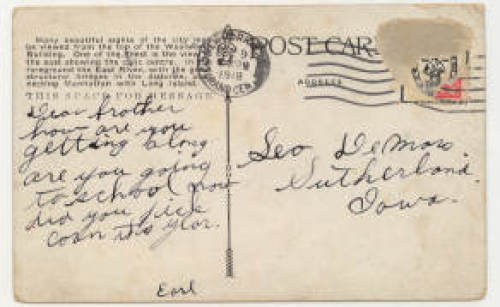 Many beautiful sights of the city may
be viewed from the top of the Woolworth
Building. One of the finest is the view
the east showing the civic centre, in
foreground the East River, with the
structural bridges in the distance,
necting Manhattan with Long Island.
THIS SPACE FOR MESSAGE
POST CARD
ADDRESS
1918
Dear brother
how are you
getting along
are you going
to school now
did you pick
corn this year.
Earl
Geo DeMoss
Sutherland
Iowa.